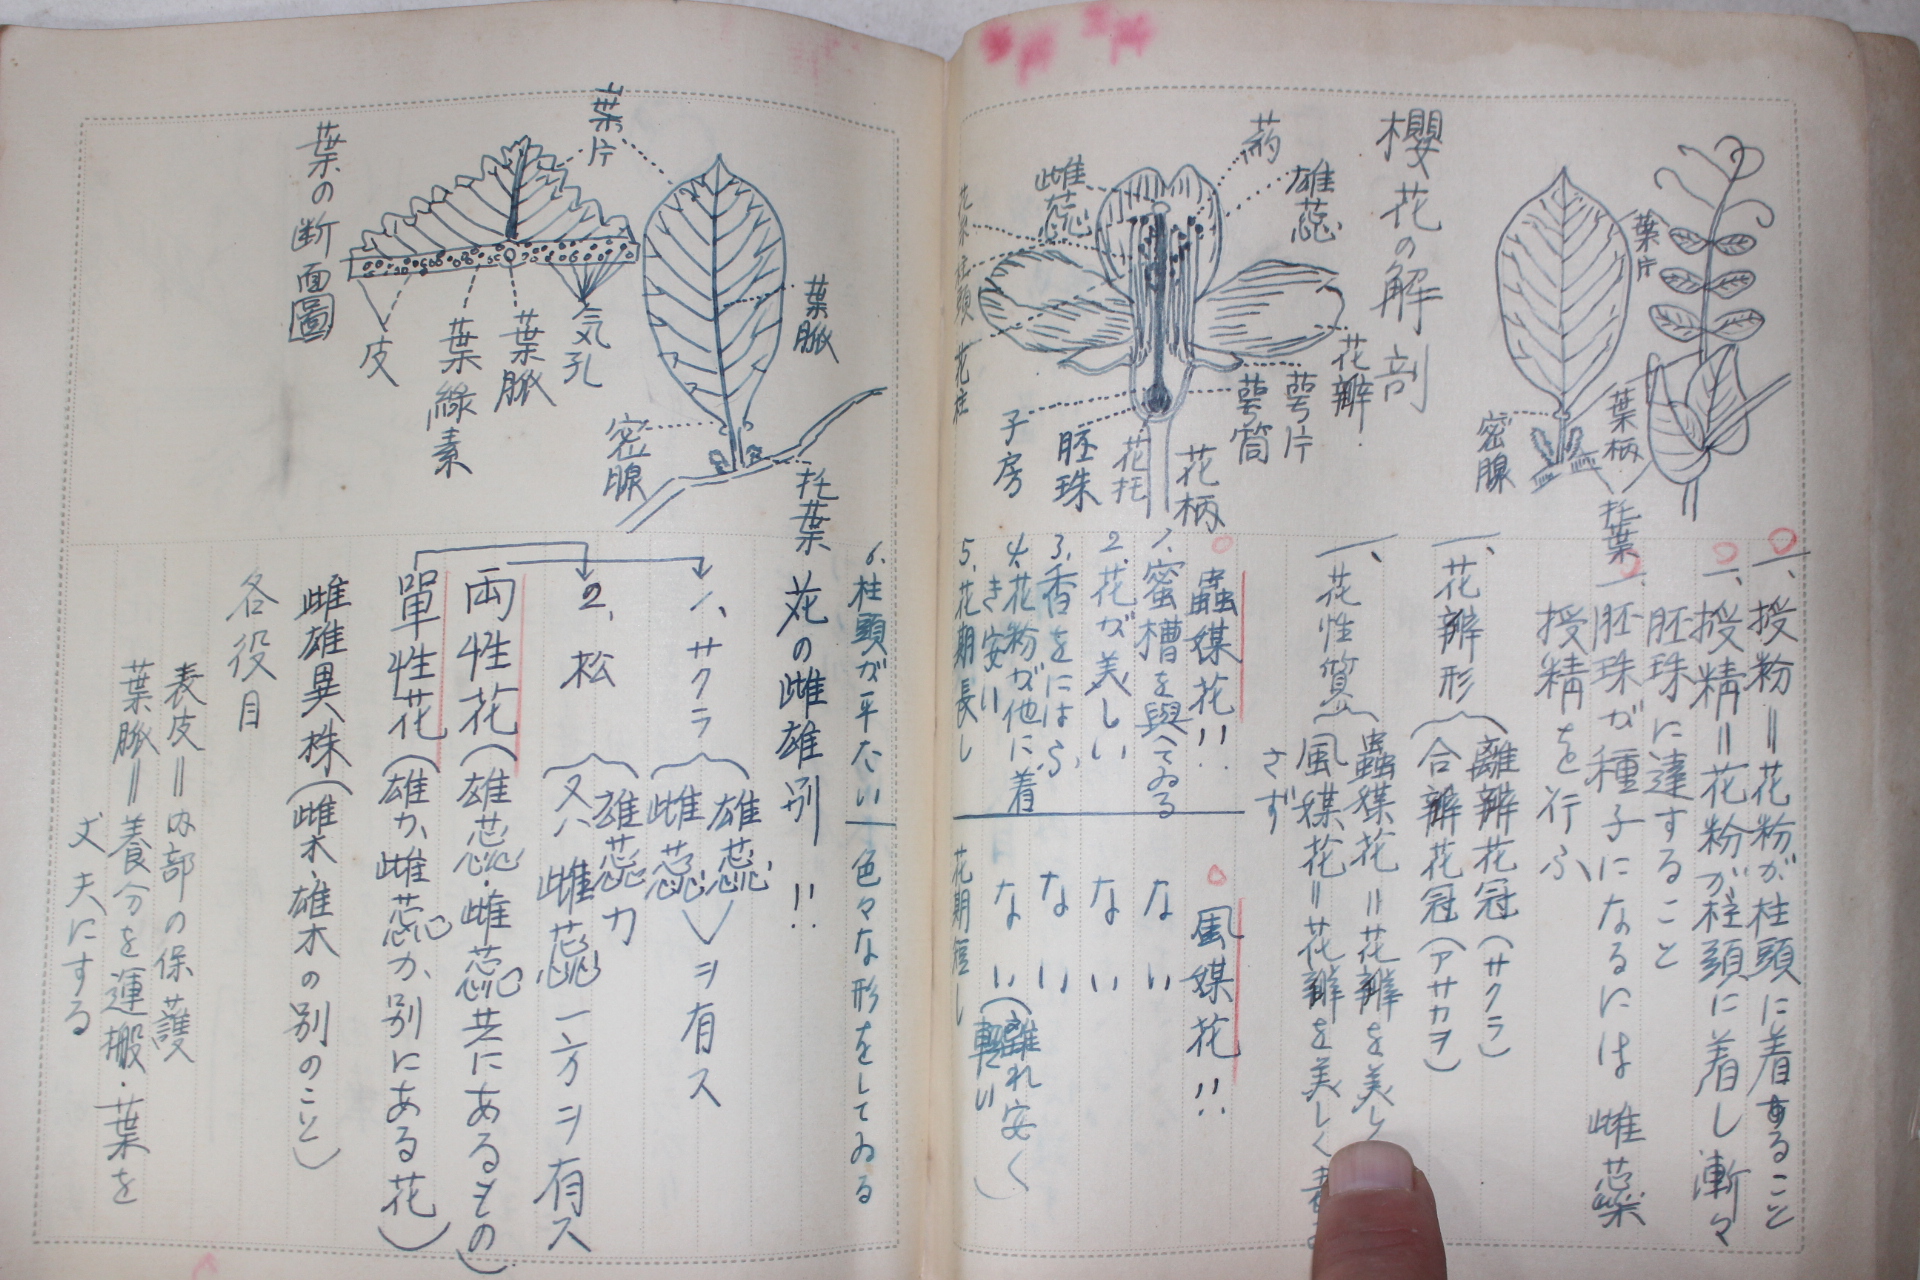 櫻花の解剖
葯
雄蕊
雌蕊
柱頭
花柱
花瓣
萼片
萼筒
花柄
花托
胚珠
子房
葉片
葉柄
密腺
托葉
一、授粉＝花粉が柱頭に着すること
一、授精＝花粉が柱頭に着し漸々
胚珠に達すること
一、胚珠が種子になるには雌蕊
授精を行ふ
一、花瓣形
離瓣花冠（サクラ）
合瓣花冠（アサカヲ）
一、花性質
蟲媒花＝花瓣を美しく
風媒花＝花瓣を美しく
さず
蟲媒花!!
1、蜜槽を與へてゐる
2、花が美しい
3、香をにほふ
4、花粉が他に着
き安い
5、花期長し
風媒花!!
ない
ない
ない
ない（離れ安く
軽い）
花期短し
6、柱頭が平たい
色々な形をしてゐる
葉片
葉の断面圖
葉脈
皮
葉綠素
葉脈
気孔
密腺
托葉
花の雌雄別!!
1、サクラ
雄蕊
雌蕊
ヲ有ス
2、松
雄蕊カ
又ハ雌蕊
一方ヲ有ス
両性花（雄蕊・雌蕊共にあるもの）
單性花（雄か、雌蕊か、別にある花）
雌雄異株（雌木・雄木の別のこと）
各役目
表皮＝内部の保護
葉脈＝養分を運搬・葉を
丈夫にする